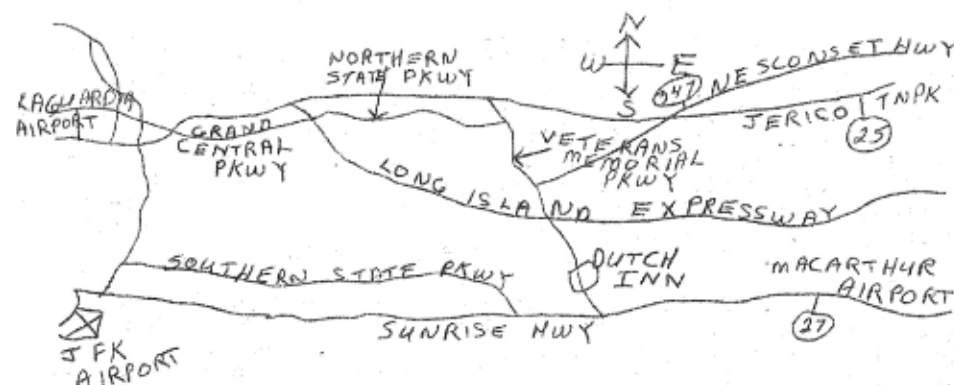 NORTHERN
STATE PKWY
N
W E
S
347
NESCONSET HWY
LAGUARDIA
AIRPORT
GRAND
CENTRAL
PKWY
JERICO TNPK
25
VETERANS
MEMORIAL
PKWY
LONG ISLAND EXPRESSWAY
SOUTHERN STATE PKWY
DUTCH
INN
MACARTHUR
AIRPORT
27
SUNRISE HWY
JFK
AIRPORT